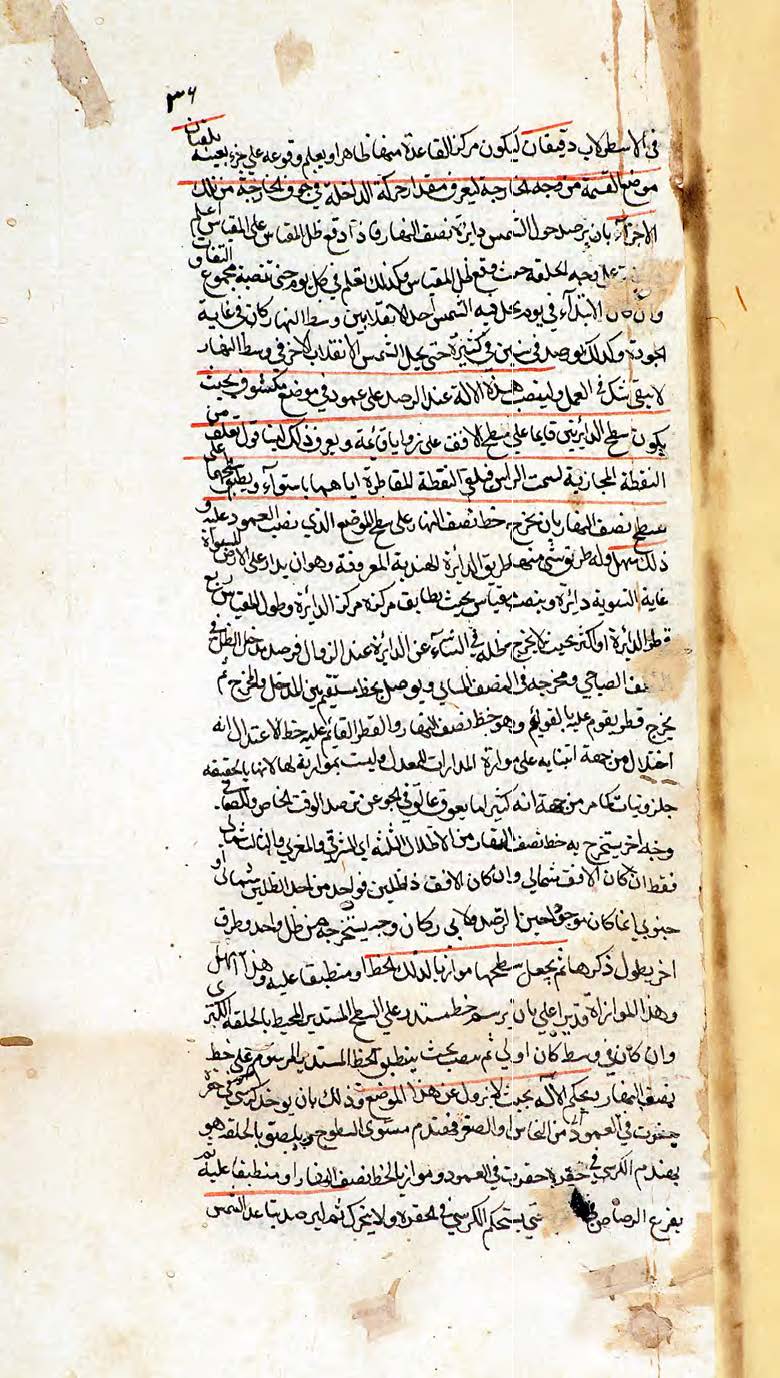 ٣٦
في الاسطرلاب دقيقان ليكون مركز القاعدة منهما ظاهرا ويعلم وقوعه على جزء بعينه يلقيان
موضع القسمة من وجه الخارجة ليعرف مقدار حركة الداخلة في جوف الخارجة من تلك
الاجزاء بان يرصد حول الشمس دايرة نصف النهار فاذا وقع ظل المقياس على المقياس اعلم
على وجه الحلقة حيث وقع ظل المقياس وكذلك تعلم في كل يوم حتى
وان كان الابتداء في يوم تحل فيه الشمس احد الانقلابين وسط النهار كان في غاية
الجودة وكذلك يوصد في سنين كثيرة حتى يحل الشمس الانقلاب الاخر في وسط النهار
لا يبقى شك في العمل ولينصب هذه الالة عند الرصد على عمود في موضع مكشوف بحيث
يكون سطح الدائرتين قايما على سطح الافق على زوايا قائمة ويعرف ذلك لينا قول يعلق من
النقطة المجازية لسمت الراس فيلقى النقطة المقاطرة اياها باستواء ويطبق سطحها على
سطح نصف النهار بان يخرج خط نصف النهار على سطح الموضع الذي نصب العمود عليه و
ذلك سهل وله طرق شتى منها طريق الدائرة الهندية المعروفة وهو ان يدار على الارض المسواة
غاية التسوية دائرة وينصب مقياس بحيث يطابق مركزه مركز الدائرة وطول المقياس ربع
قطر الدائرة او اكثر بحيث لا يخرج ظله في الشتاء عن الدائرة عند الزوال فرصد مدخل الظل في
النصف الصباحي ومخرجه في النصف المسائي ويوصل بخط مستقيم بين المدخل والمخرج ثم
يخرج قطر يقوم عليه بالقوائم وهو خط نصف النهار والقطر القائم عليه خط الاعتدال انه
اختلال من جهة ابتنايه على موازاة المدارات للمعدل وليست بموازية لها لانها بالحقيقة
حلزونيات كما مر من جهة انه كثيرا ما يعوق عائق في الجو عن ترصد الوقت الخاص
وجه اخر يستخرج به خط نصف النهار من الاظلال الثلثة اي الشرقي والمغربي والثالث شمالي
فقط ان كان الافق شمالي وان كان الافق ذا ظلين فواحد من احد الظلين شمالي او
جنوبي ايهما كان موجودا حين الرصد ولابي ريحان وجه يستخرجه من ظل واحد وطرق
اخر يطول ذكرها ثم يجعل سطحها موازيا لذلك الخط او منطبقا عليه وهذا اسهل
وهذا الموازاة قد يراعي بان يرسم خط مستدير على السطح المستدير المحيط بالحلقة الكبرى
وان كان في وسط كان اولى ثم ينصب بحيث ينطبق الخط المستدير المرسوم على خط
نصف النهار يحكم الالة بحيث لا يزول عن هذا الموضع وذلك بان يوخذ كرسي في حفرة
حفرت في العمود من النحاس او الصفر فهندم مستوى السطوح ويلصق بالحلقة هو
يهندم الكرسي في حفرة حفرت في العمود وموازيا لخط نصف النهار او منطبقا عليه ثم
يفرغ الرصاص حتى يستحكم الكرسي في الحفرة ولا يتحرك ثم ليرصد تباعد الشمس